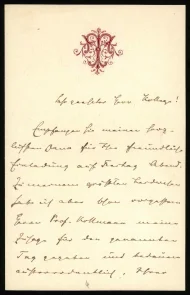 Sehr geehrter Herr Kollege!
Empfangen Sie meinen herz-
lichsten Dank für Ihre freundliche
Einladung auf Freitag Abend.
Zu meinem größten Bedauern
habe ich aber schon vorgestern
Herrn Prof. Kollmann meine
Zusage für den genannten
Tag gegeben und bedaure
außerordentlich, Ihrer